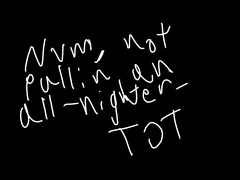 Nvm, not
pullin' an
all-nighter-
TOT